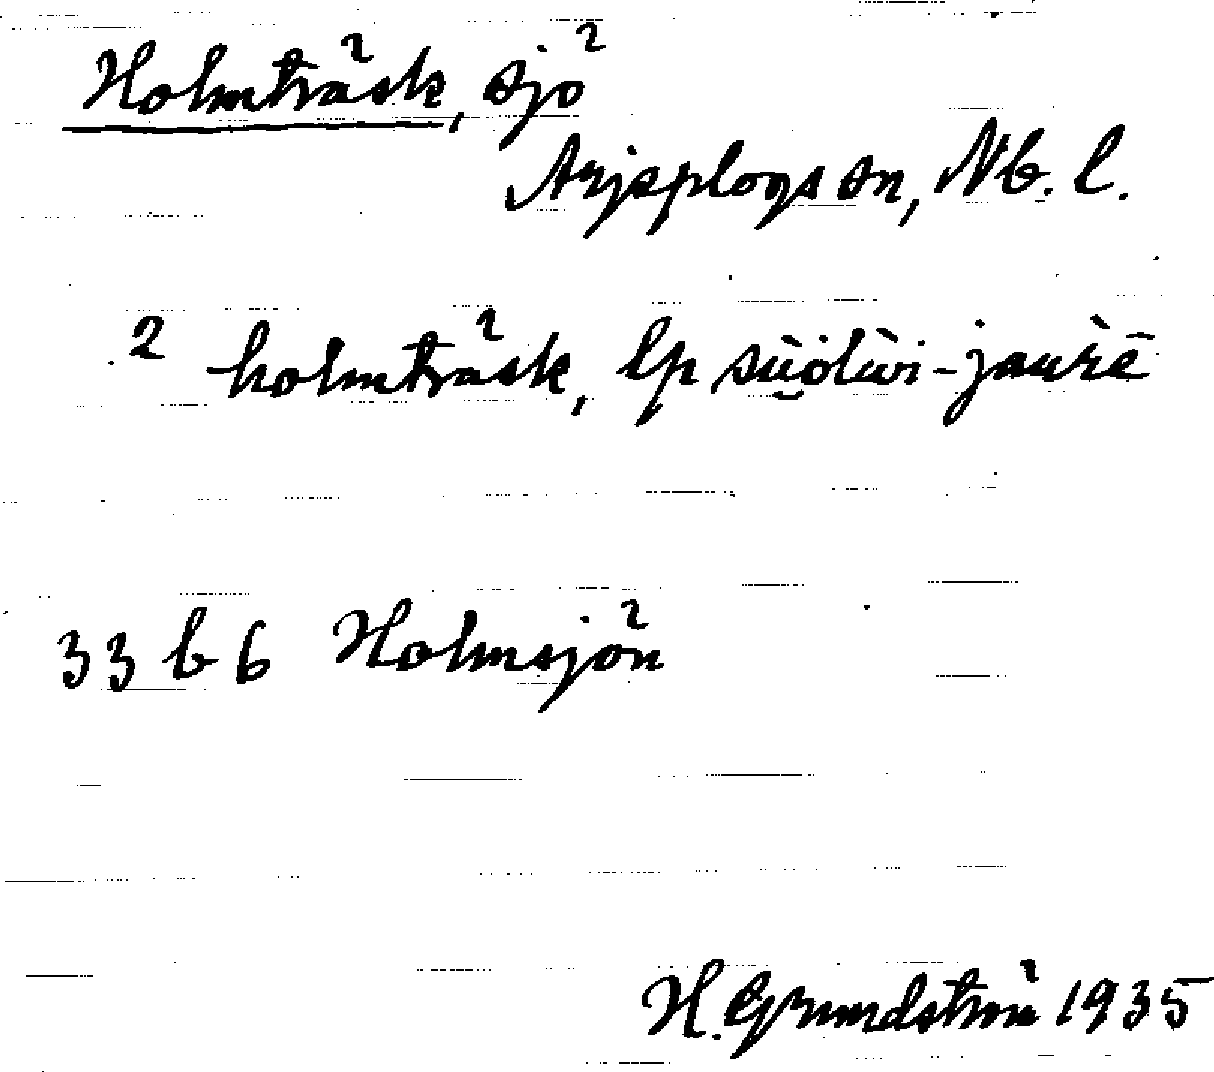 Holmträsk, sjö
Arjeplogs sn, Nb. l.
2 holmträsk, lp
33 b 6 Holmsjön
H. Grundström 1935